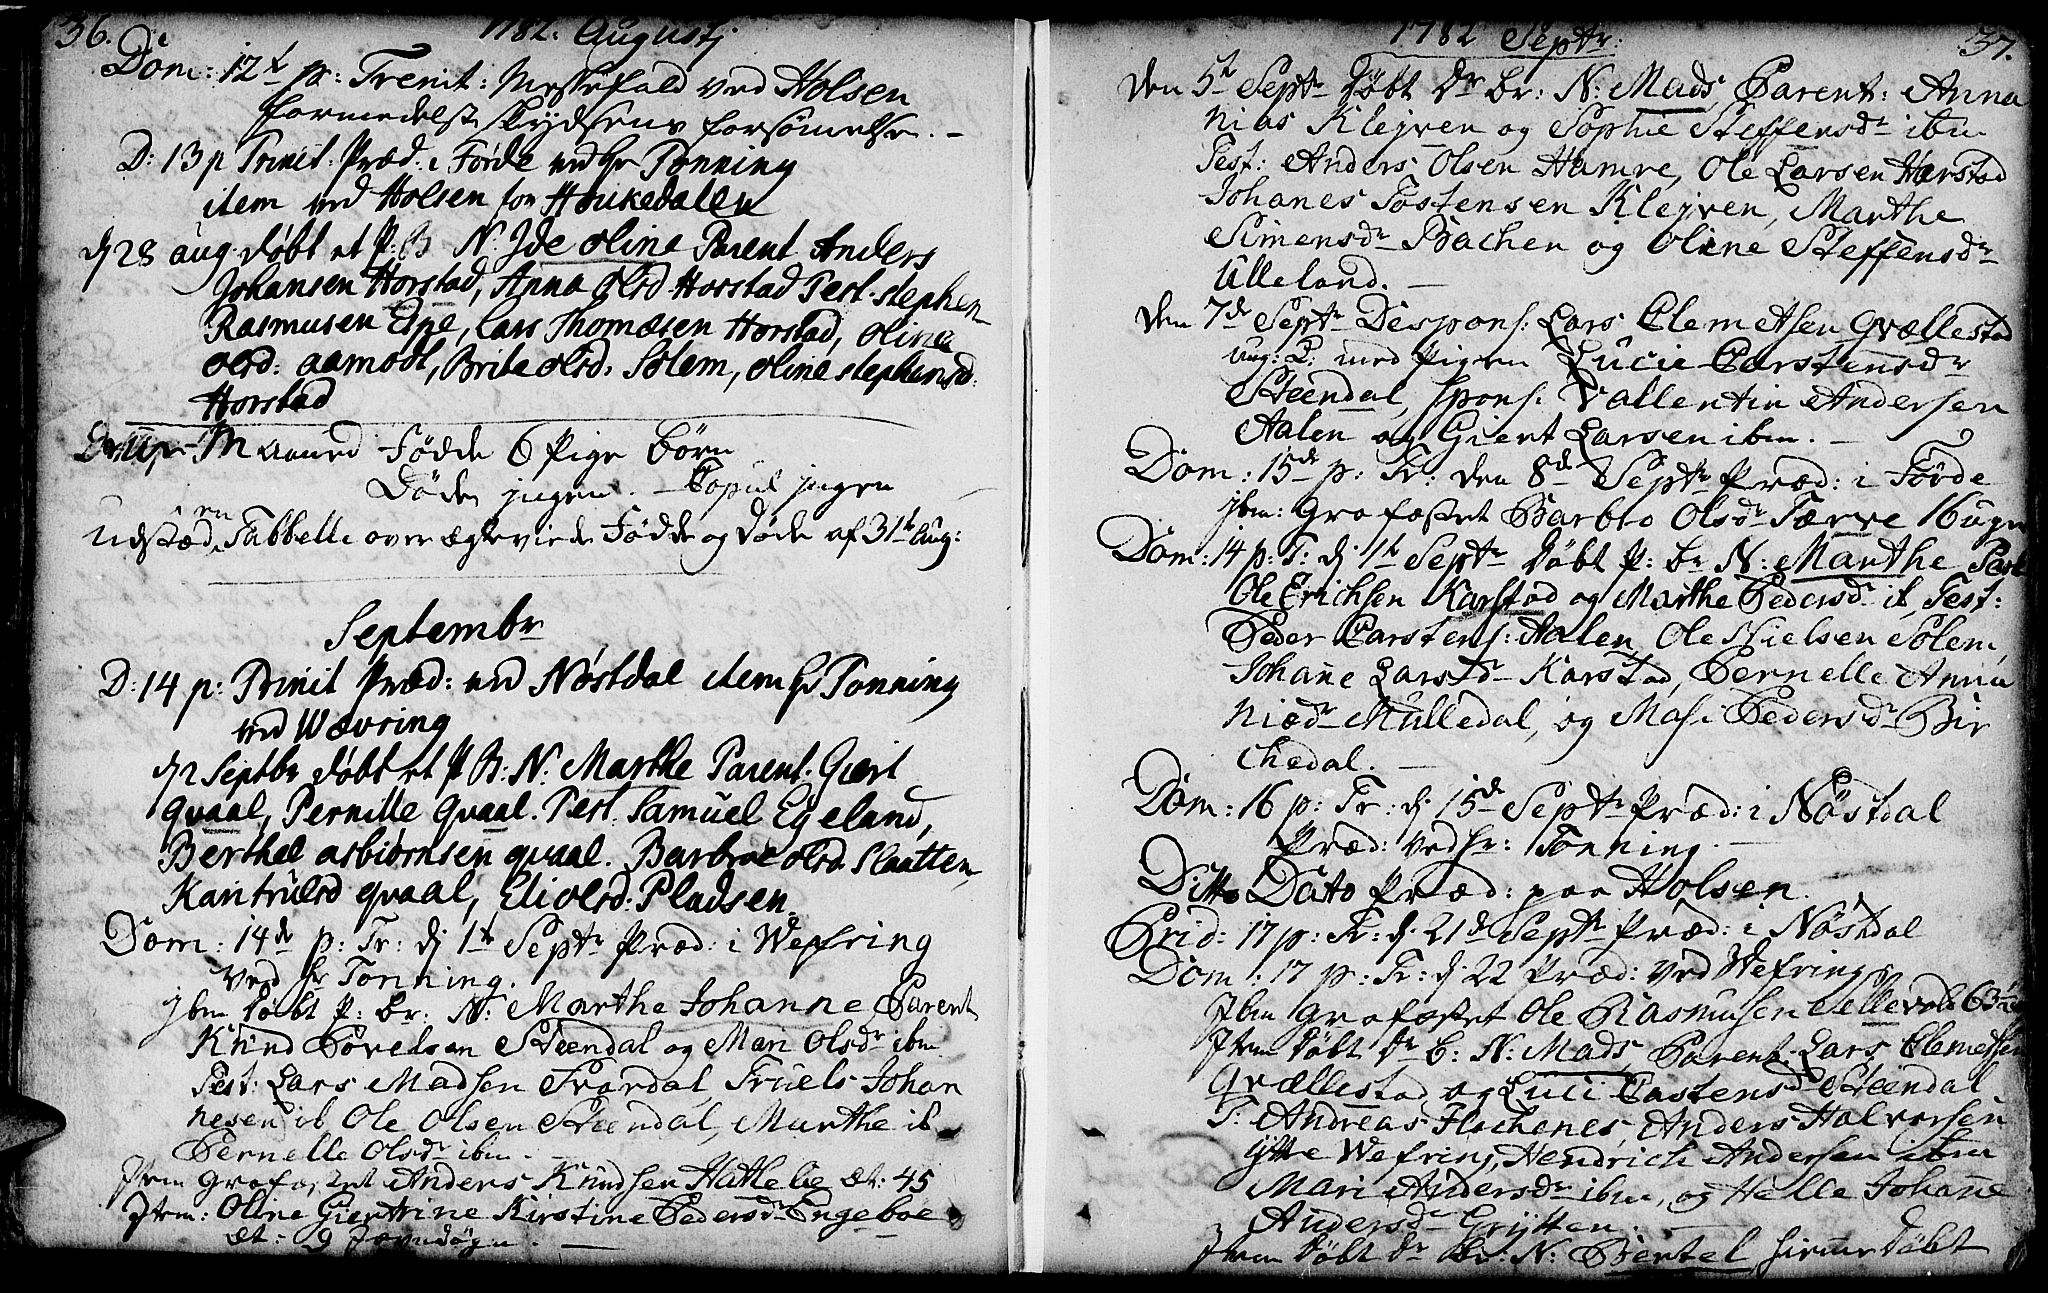 36.
1782. Augustj
Dom: 12te p: Trenit: Messefald ved Holsen
formedelst skydsens forsømelse. -
D: 13 p Trinit. Præd. i Førde ved Hr Tonning
item ved Holsen for Houkedalen
dj 28 aug. døbt et P: B N. Ide Oline Parent Anders
Johansen Horstad, Anna Olsd Horstad Test. stephen
Rasmusen Espe, Lars Thomæsen Horstad, Oline
olsd: aamodt, Brite olsd. Solem, oline stephensd:
Horstad
Maaned Fødde 6 Pige børn
Døde jngen. - Copul jngen
Udstæd en Tabbelle over ægteviede Fødde og døde af 31te Aug:
Septembr
D: 14 p: Trinit Præd: ved Nøstdal item Hr Tonning
ved Wævring
dj 2 Septbr døbt et P B: N. Marthe Parent. Giert
qvaal, Pernille qvaal. Test. Samuel Egeland,
Berthel asbiørnsen qvaal. Barbroe olsd. Slaatten,
Kari trulsd qvaal, Eli olsd. Pladsen.
Dom: 14de p: Tr: dj 1te Septr Præd: i Wefring
ved Hr Tonning.
jbm døbt P: br: N: Marthe Johanne Parent
Knud Povelsen Steendal og Mari Olsdr ibm
Test: Lars Madsen Svardal, Truels Johan
nesen ib Ole Olsen Steendal, Marthe ib
Pernelle Olsdr ibm. -
Jtem Grafæstet Anders Knudsen Hathelie æt: 45
Jtem: Oline Giertrine Kirstine Pedersdr Engeboe
æt: 9 Jevndøgn. -
1782 Septr:
37.
den 5te Septr døbt dr br: N: Mads, Parent: Anna
nias Klejven og Sophie Steffensdr ibm
Test: Anders Olsen Hamre, Ole Larsen Harstad
Johanes Tostensen Klejven, Marthe
Simensdr Bachen og Oline Steffensdr
Ulleland. -
den 7de Septr Despons: Lars Clemetsen Qvællestad
ung: C: med Pigen Lucie Carstensdr
Steendal, spons: Vallentin Andersen
Aalen og Giert Larsen ibm. -
Dom: 15de p: Tr: den 8de Septr Præd: i Førde
jbm: Grafæstet Barbro Olsdr Tærre 16 uger
Dom: 14 p: T: dj 1te Septr døbt P: br N: Marthe Par
Ole Erichsen Karstad og Marthe Pedersdr ib, Test:
Peder Carstens: Aalen, Ole Nielsen Solem,
Johane Larsdr Karstad, Pernelle Anna
niædr Mulledal, og Mari Pedersdr Bir
chedal. -
Dom: 16 p: Tr: dj 15de Septr Præd: i Nøstdal
Præd: ved hr: Tonning. -
Ditto Dato Præd: paa Holsen.
Prid: 17 p: Tr: dj 21de Septr Præd: i Nøstdal
Dom: 17 p: Tr: dj 22 Præd: ved Wefring
Jbm Grafæstet Ole Rasmusen Sellevold 63
Jtem døbt dr b: N: Mads Parent: Lars Clemetsen
Qvællestad og Luci Castensdr Steendal
T: Andreas Flochenes, Anders Halvorsen
ytre Wefring, Hendrich Andersen ibm
Mari Andersdr ibm, og Helle Johane
Andersdr Grytten. -
Jtem døbt dr br: N: Bertel, hieme døbt